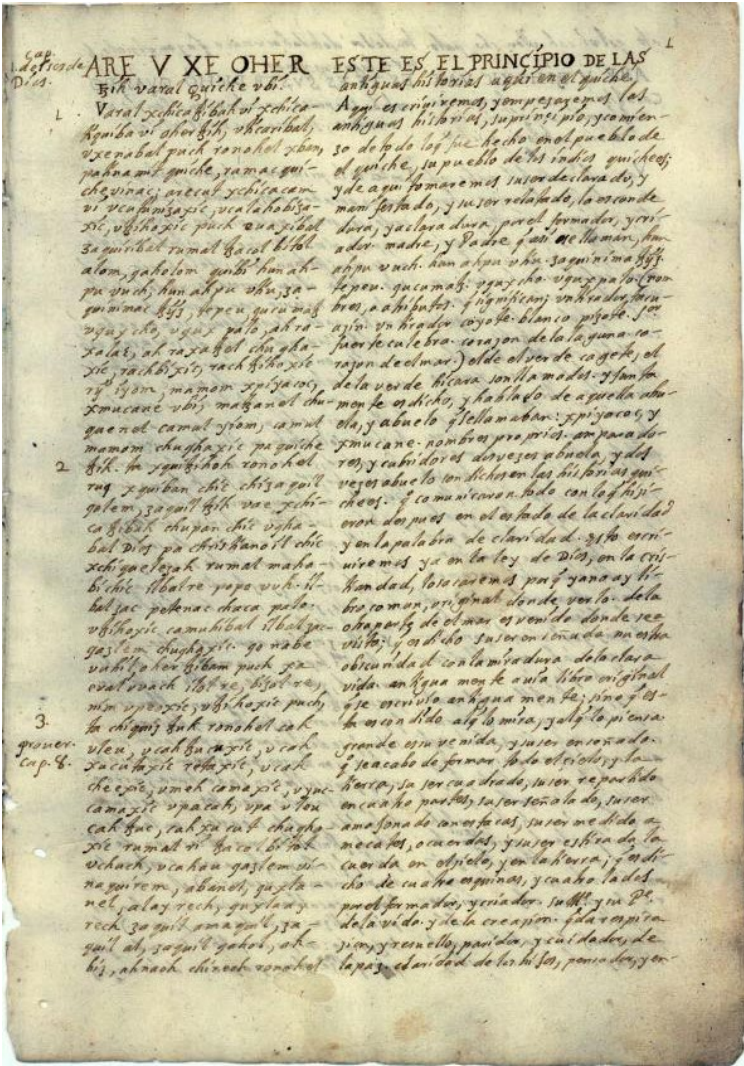 ARE V XE OHER
tzih varal Quiche vbi.
Varal xchicatzibah vi xchica-
tiquiba vi oher tzih, vticaribal,
vxenabal puch ronohel xban,
pa tinamit quiche, ramac qui-
che vinac; arecut xchicacam
vi vcutunizaxic, vcalahobiza-
xic, vtzihoxic puch euaxibal
zaquiribal rumal tzacol bitol
alom, qaholom quibi hun ah-
pu vuch, hun ahpu vtiu, za-
quinimac tzyz, tepeu, qucumatz
vqux cho, vqux palo, ah ra-
xalaq, ah raxatzel chugha-
xic, rachbixic, rachtzihoxic
rij iyom, mamom xpiyacoc,
xmucane vbi, matzanel chu-
quenel camul yiom, camul
mamom chughaxic pa quiche
tzih. ta xquitzihoh ronohel
ruq xquiban chic chi zaquil
qolem, zaquil tzih vae xchi-
catzibah chupan chic vgha-
bal Dios pa christianoil chic
xchiquelezah rumal maha-
bi chic ilbal re popo vuh. il-
bal zac petenac chaca palo.
vtzihoxic camuhibal ilbal za-
qazlem chughaxic. qo nabe
vuhil, oher tzibam puch xa
eval vvach ilol re, bizol re,
nim vpeoxic, vtzihoxic puch,
ta chi quiz tzuk ronohel cah
vleu, vcah tzucuxic, vcah
xucutaxic retaxic, vcah
cheexic, vmeh camaxic, vyuc
camaxic vpa cah, vpa vleu
cah tzuc, cah xucut chugha-
xic rumal ri tzacol bitol
vchuch, vcahau qazlem vi-
naquirem, abanel, quxla-
nel, alay rech, quxlaay
rech zaquil amaquil, za-
quil al, zaquil qahol, ah-
biz, ahnaoh chirech ronohel
ESTE ES EL PRINCIPIO DE LAS
antiguas historias aqui en el quiche.
Aqui escriviremos, y empesaremos las
antiguas historias, su principio, y comien-
zo de todo lo q̃ fue hecho en el pueblo de
el quiche, su pueblo de los indios quichees;
y de aqui tomaremos su ser declarado, y
manifestado, y su ser relatado, la esconde
dura, y aclaradura, por el formador, y cri-
ador. madre, y Padre q̃ asi se llaman, hun
ahpu vuch. hun ahpu vtiu. zaquinima tzyz.
tepeu. qucumatz. vqux cho. vqux palo. (nom
bres, o atributos. q̃ significan; vn tirador, tacu-
azin. vn tirador coyote. blanco pizote. Sor
fuerte culebra. corazon de la laguna. co-
razon de el mar.) el de el verde cagete, el
de la verde hicara son llamados. y junta
mente es dicho, y hablado de aquella abu-
ela, y abuelo q̃ se llamaban: xpiyacoc, y
xmucane. nombres proprios. amparado-
res, y cubridores dos vezes abuela, y dos
vezes abuelo son dichos en las historias qui-
chees. q̃ comunicaron todo con lo q̃ hizi-
eron despues en el estado de la claridad
y en la palabra de claridad. Esto escri-
viremos ya en la ley de Dios, en la cris-
tiandad, lo sacaremos porq̃ ya no ay li-
bro comun, original donde verlo. de la
otra parte de el mar es venido donde se a
visto; q̃ es dicho su ser enseñada nuestra
obscuridad con la miradura de la clara
vida. antigua mente auia libro original
q̃ se escrivio antigua mente; sino q̃ es-
ta escondido al q̃ lo mira, y al q̃ lo piensa
grande es su venida, y su ser enseñado.
q̃ se acabo de formar todo el cielo, y la
tierra, su ser cuadrado, su ser repartido
en cuatro partes, su ser señalado, su ser
amojonado con estacas, su ser medido a
mecates, o cuerdas, y su ser estirada la
cuerda en el sielo, y en la tierra; q̃ es di-
cho de cuatro esquinas, y cuatro lados
por el formador, y criador. su Me. y su Pe.
de la vida. y de la creasion. q̃ da respira
sion, y resuello, paridor, y cuidador, de
la paz. claridad de los hijos, pensador, y en-
1
1.
2
3.
prouer.
cap. 8.